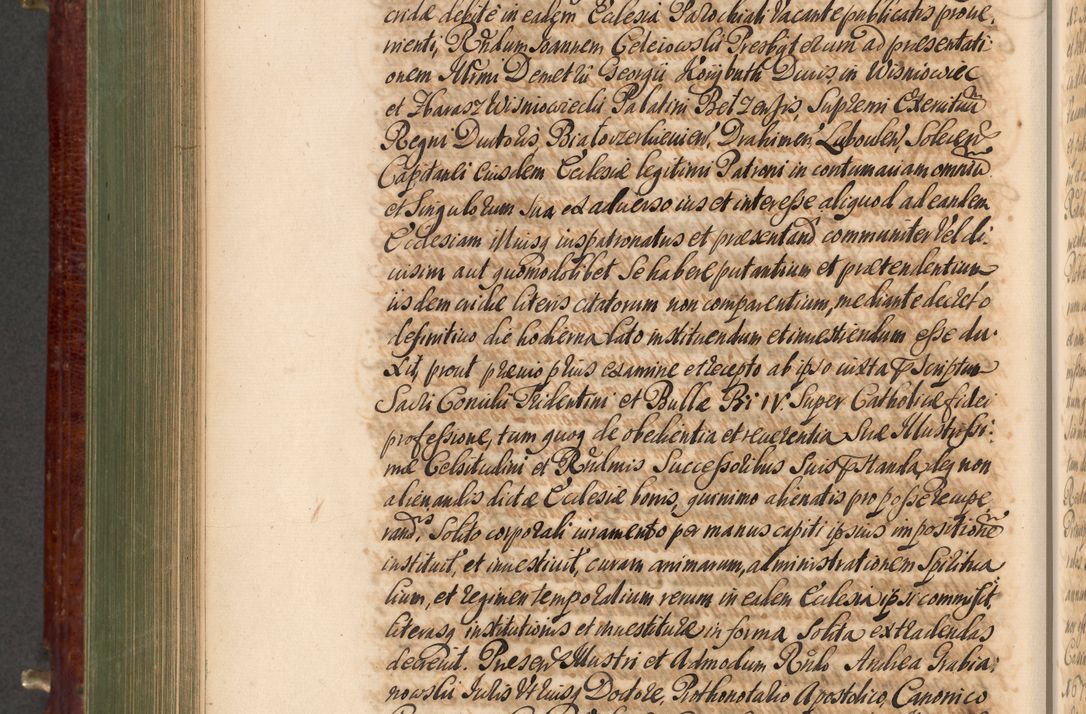 cridæ debite in eadem Ecclesia Parochiali vacante publicatis prove,
nienti, Rndum Joannem Geleiowski Presbyterum ad præsentati
onem Illrmi Demetrii Georgii Korybuth Ducis, in Wisniowiec
et Zbaraz Wisniowiecki Palatini Belzensis, Supremi Exercituũ
Regni Ductoris, Bialocerkievien, Drahimen, Lubovlen, Solecen
Capitanei Eiusdem Ecclesiæ legitimi Patroni in contumatiam omniũ
et Singulorum Sua ex adverso ius et interesse aliquod ad eandem
Ecclesiam illiusq iuspatronatus et præsentand communiter vel di,
visim aut quomodolibet Se habere putantium et prætendentium
iisdem cridæ literis citatorum non comparentium, mediante decreto
definitivo die hodierna lato instituendum et investiendum esse du,
xit, prout prævio prius examine et recepto ab ipso iuxta Pscriptum
Sacri Concilii Tridentini et Bullæ Pii IV. Super Catholicæ fidei
professione, tum quoq de obedientia et reverentia Suæ Illustrissi:
mæ Celsitudini et Rndmis Successoribus Suis Pstanda deq non
alienandis dictæ Ecclesiæ bonis, quinimo alienatis pro posse recupe,
rand, Solito corporali iuramento per manus capiti ipsius impositionẽ
instituit, et investivit, curam animarum, administrationem Spiritua
lium, et regimen temporalium rerum in eadem Ecclesia ipsi commisit,
literasq institutionis et investituræ in forma Solita extradendas
decrevit. Presen Illustri et Admodum Rndo Andrea Grabia,
nowski Iuris Utriusq Doctore, Prothonotario Apostolico, Canonico